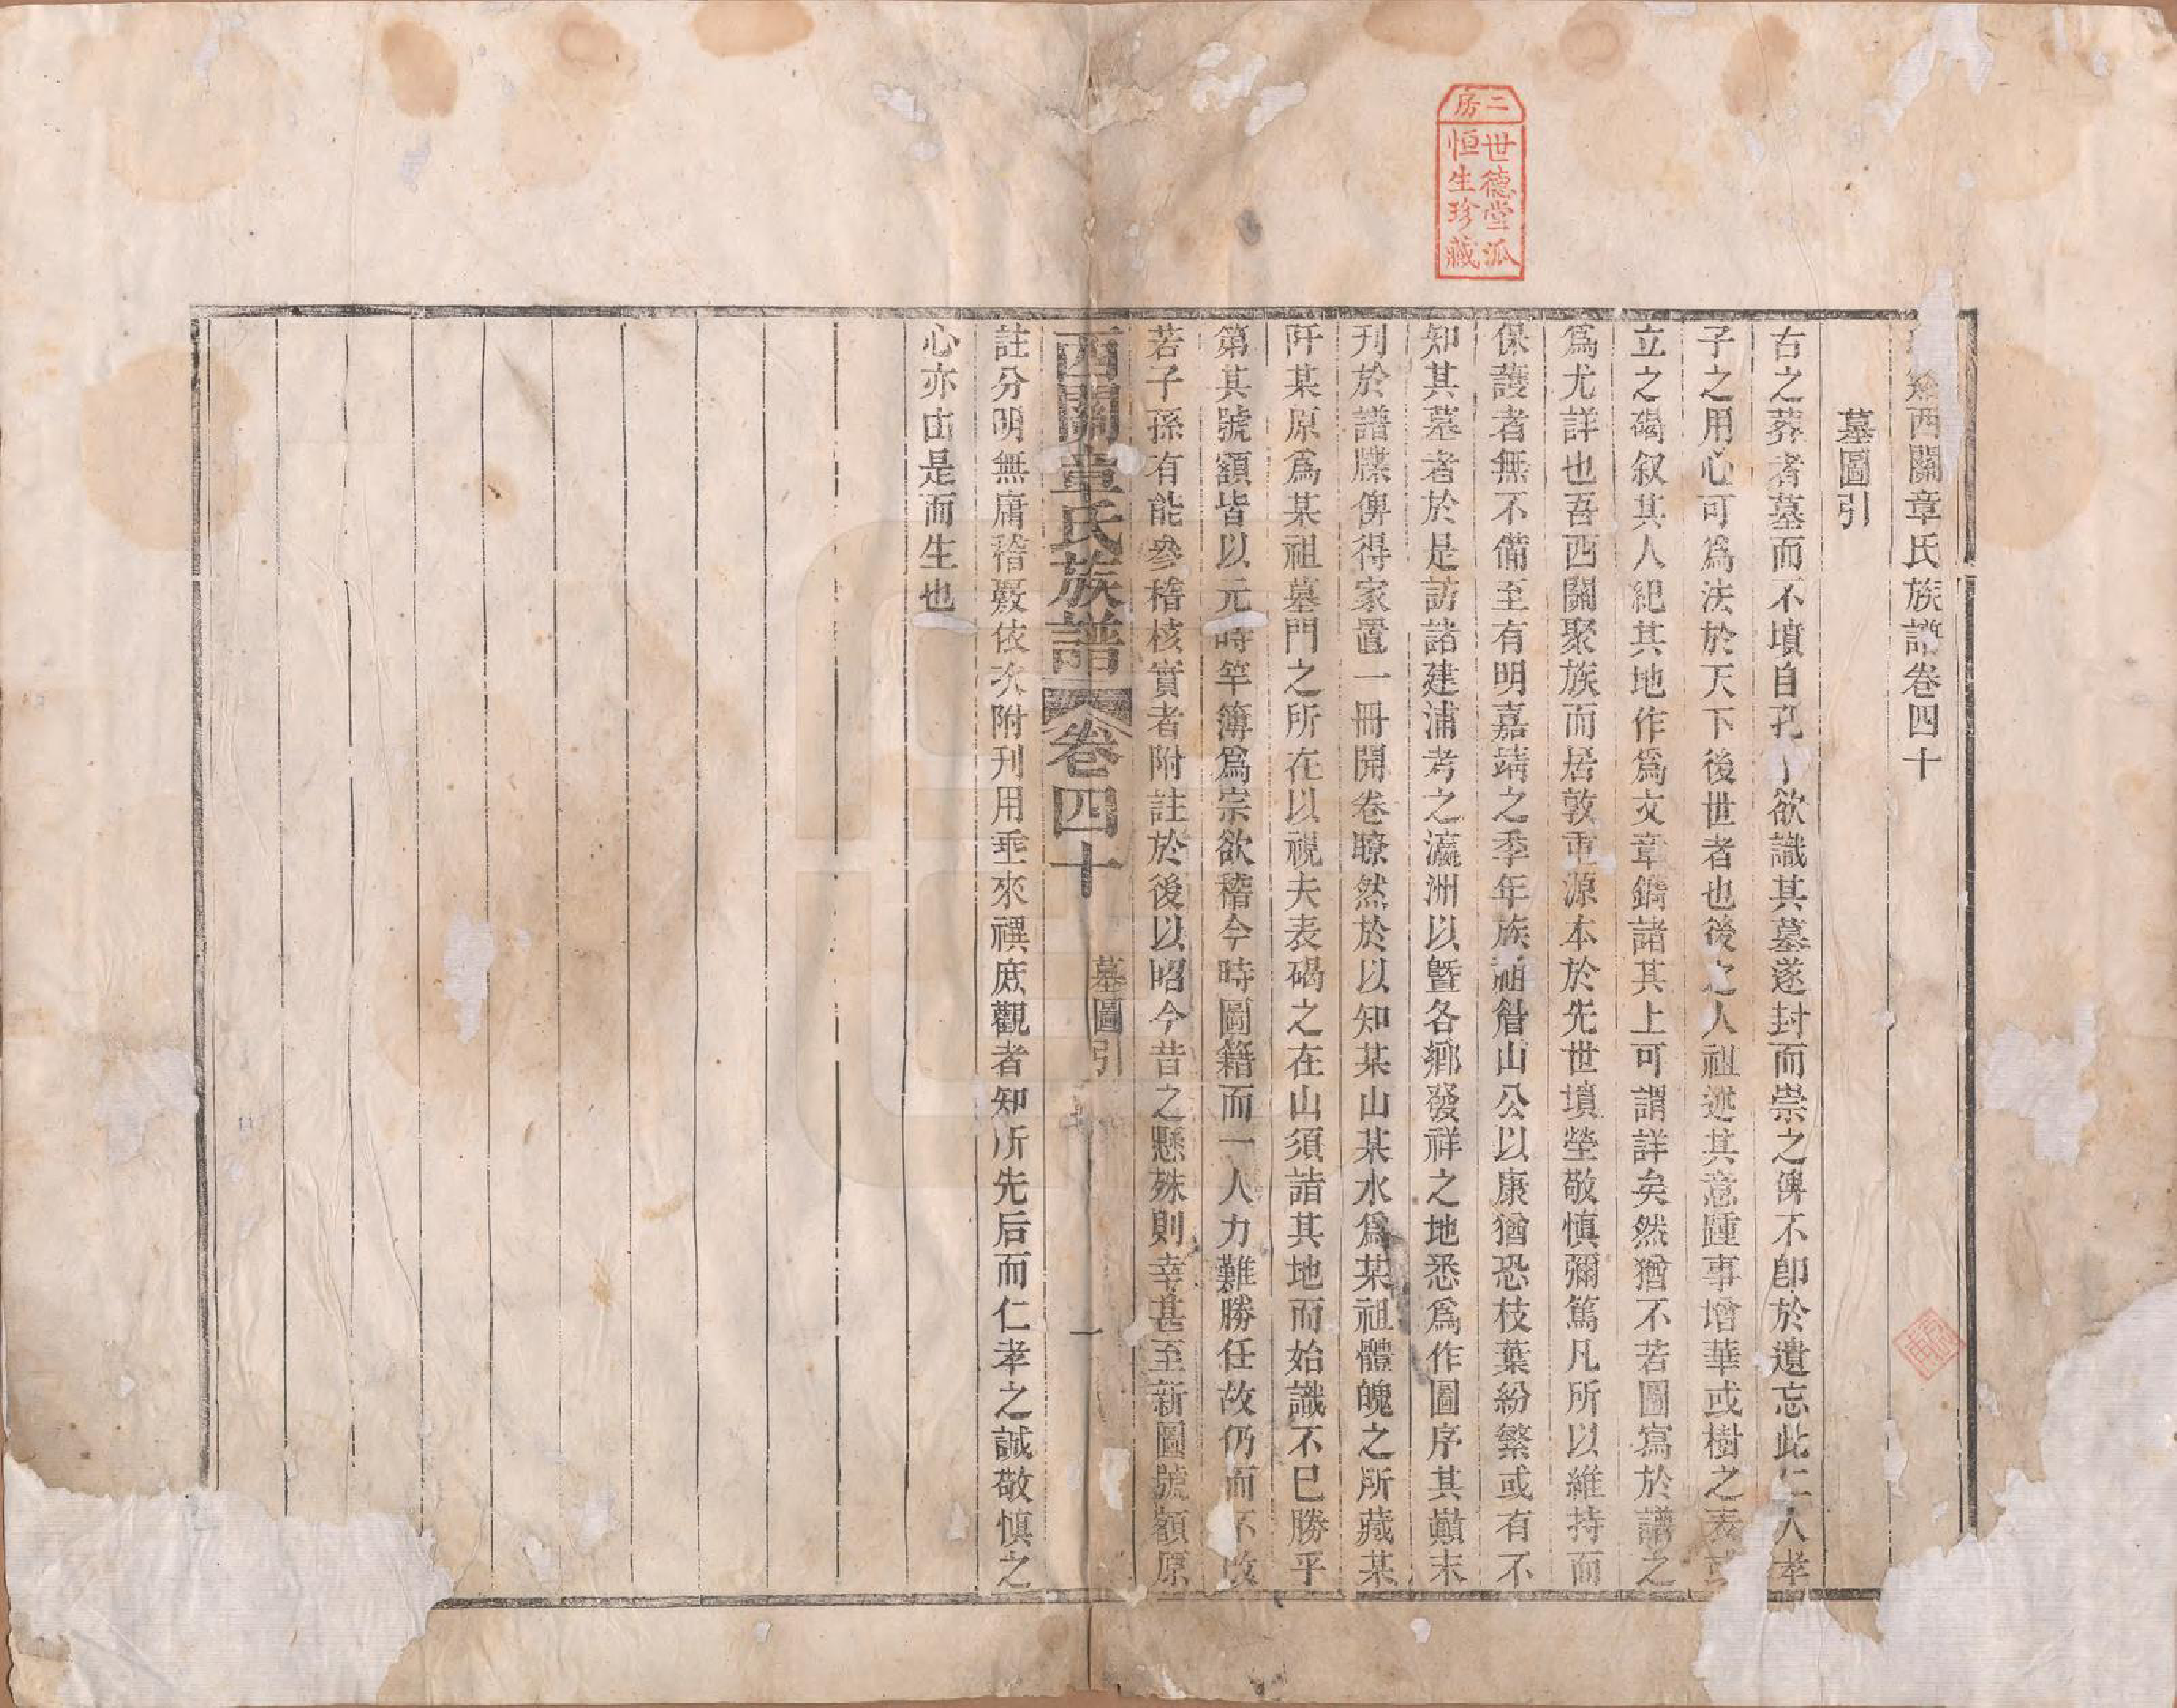 二房
世德堂派
恒生珍藏
西關章氏族譜卷四十
墓圖引
古之葬者墓而不墳自孔子欲識其墓遂封而崇之俾不卽於遺忘此仁人孝
子之用心可爲法於天下後世者也後之人祖述其意踵事增華或樹之表或
立之碣叙其人紀其地作爲文章鐫諸其上可謂詳矣然猶不若圖寫於譜之
爲尤詳也吾西關聚族而居敦重源本於先世墳塋敬慎彌篤凡所以維持而
保護者無不備至有明嘉靖之季年族祖眉山公以康猶恐枝葉紛繁或有不
知其墓者於是訪諸建浦考之瀛洲以曁各鄕發祥之地悉爲作圖序其巔末
刊於譜牒俾得家置一冊開卷瞭然於以知某山某水爲某祖體魄之所藏某
阡某原爲某祖墓門之所在以視夫表碣之在山須詣其地而始識不已勝乎
第其號額皆以元時竿簿爲宗欲稽今時圖籍而一人力難勝任故仍而不改
若子孫有能參稽核實者附註於後以昭今昔之懸殊則幸甚至新圖號額原
西關章氏族譜 卷四十 墓圖引 一
註分明無庸稽覈依次附刊用垂來禩庶觀者知所先后而仁孝之誠敬慎之
心亦由是而生也